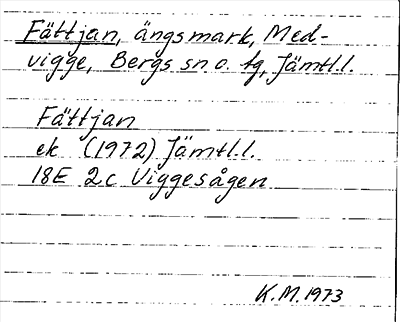 Fättjan, ängsmark, Med-
vigge, Bergs sn o. tg, Jämtl.l.
Fättjan
ek (1972) Jämtl.l.
18E 2c Viggesågen
K.M. 1973